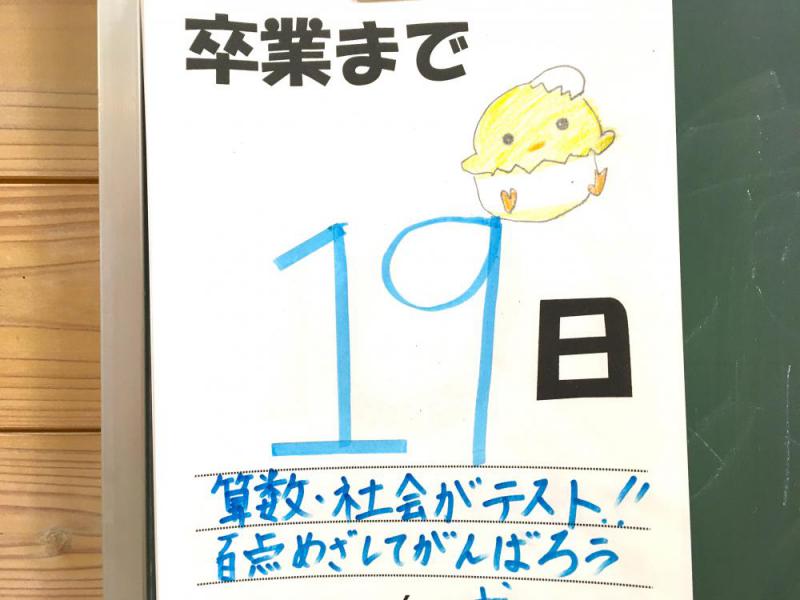 卒業まで
19日
算数・社会がテスト!!
百点めざしてがんばろう